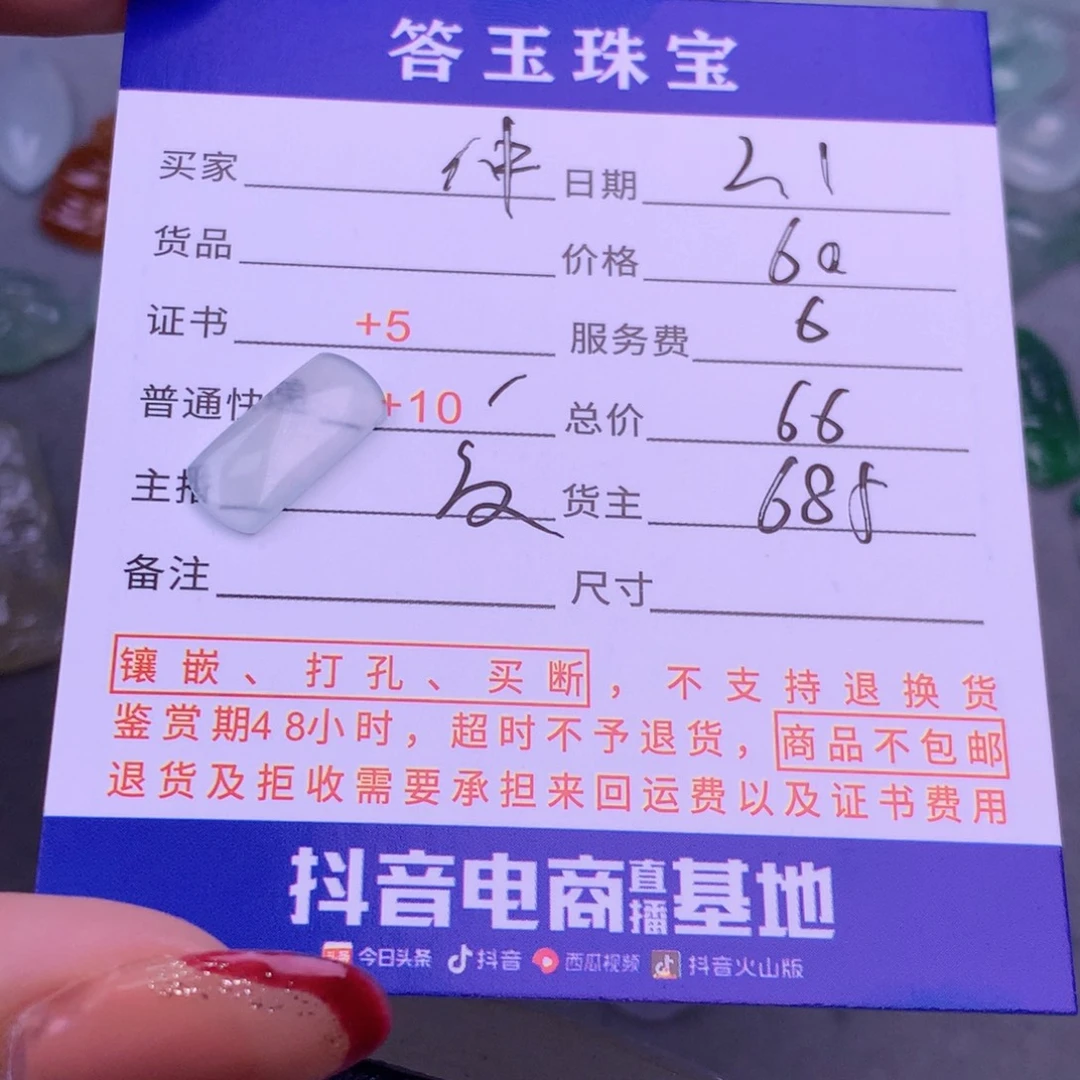 答玉珠宝
买家 仲 日期 21
货品 价格 60
证书 +5 服务费 6
普通快 +10 总价 66
主播 货主 685
备注 尺寸
镶嵌、打孔、买断，不支持退换货
鉴赏期48小时，超时不予退货，商品不包邮
退货及拒收需要承担来回运费以及证书费用
抖音电商直播基地
头条 今日头条 抖音 西瓜视频 抖音火山版